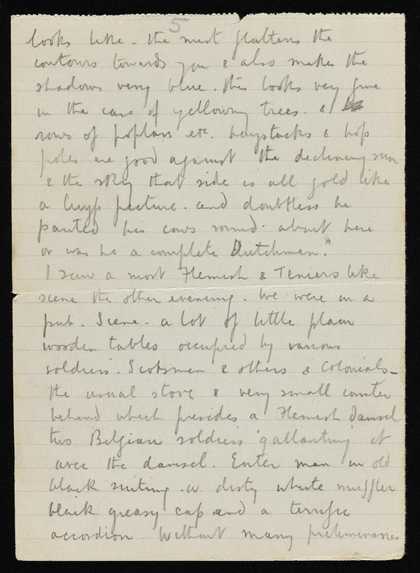 5
looks like. The mist flattens the
contours towards you & also makes the
shadows very blue. This looks very fine
in the case of yellowing trees. &
rows of poplars etc. Haystacks & hop
poles are good against the declining sun
& the sky that side is all gold like
a Cuyp picture. and doubtless he
painted his cows round about here
or was he a complete Dutchman."
I saw a most Flemish & Teniers like
scene the other evening. We were in a
pub. Scene. a lot of little plain
wooden tables occupied by various
soldiers. Scotsmen & others & Colonials -
the usual stove & very small counter
behind which presides a Flemish damsel
two Belgian soldiers 'gallanting' it
avec the damsel. Enter man in old
black suiting. a dirty white muffler
black greasy cap and a terrific
accordion. Without many preliminaries